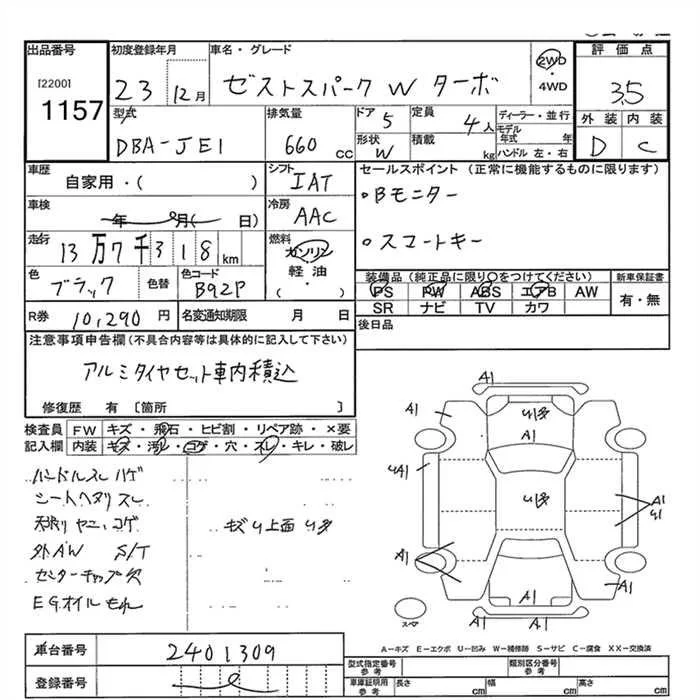 出品番号 初度登録年月 車名・グレード 評価点
[2200] 1157
23 12月 ゼストスパーク W ターボ 2WD・4WD 3.5
型式 DBA-JE1 排気量 660 cc ドア 5 定員 4人 ディーラー・並行
形状 W 積載 kg モデル年式 年 ハンドル 左・右
外装 内装
D C
車歴 自家用・( ) シフト IAT
セールスポイント (正常に機能するものに限ります)
・Bモニター
・スマートキー
車検 年 月( 日) 冷房 AAC
走行 13万7千318km 燃料 ガソリン 軽油・( )
色 ブラック 色替 色コード B92P
装備品 (純正品に限り○をつけてください) 新車保証書
PS PW ABS エアB AW 有・無
SR ナビ TV カワ
R券 10,290円 名変通知期限 月 日
後日品
注意事項申告欄 (不具合内容等は具体的に記入して下さい)
アルミタイヤセット車内積込
修復歴 有 [箇所 ]
検査員 FW キズ・飛石・ヒビ割・リペア跡・×要
記入欄 内装 キズ・汚レ・コゲ・穴・スレ・キレ・破レ
ハンドルスレ ハゲ
シートヘタリ スレ
天張リ ヤニ、コゲ キズU上面U多
外AW S/T
センターキャップ欠
EGオイルもれ
A1 A1
A1 U多 A1
A1
UA1 U多 A1
U1
A1
A1 A1 A1
A1
スペア
A1
A-キズ E-エクボ U-凹み W-補修跡 S-サビ C-腐食 XX-交換済
車台番号 2401309
登録番号
型式指定番号 参考 類別区分番号 参考
車庫証明用 参考 長さ cm 幅 cm 高さ cm